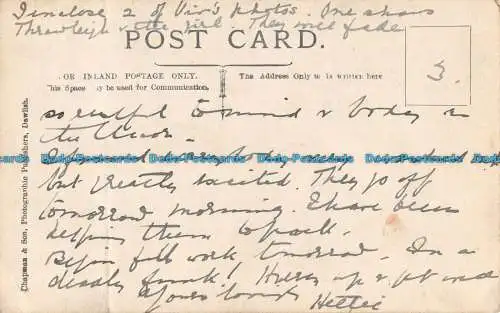 I enclose 2 of Viv's photos. One shows
Throwleigh & the girl. They will fade
POST CARD.
FOR INLAND POSTAGE ONLY.
This Space may be used for Communication.
The Address Only to be Written here
3.
restful to mind & body in
but greatly excited. They go off
tomorrow morning. I have been
helping them to pack.
Begin full work, tomorrow. In a
deadly funk! Hurry up & get well
Yours lovingly
Hettie
Chapman & Son, Photographic Publishers, Dawlish.
Bidstart-Cards